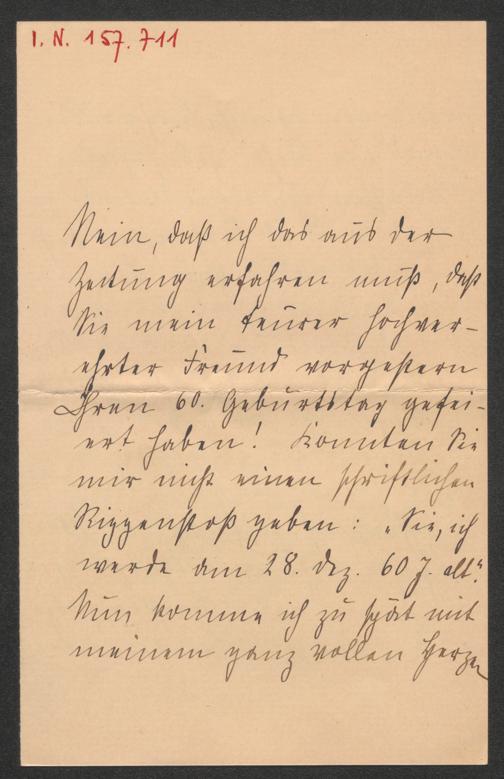 I. N. 157.711
Nein, daß ich das aus der
Zeitung erfahren muß, daß
Sie mein teurer hochver-
ehrter Freund vorgestern
Ihren 60. Geburtstag gefei-
ert haben! Konnten Sie
mir nicht einen schriftlichen
Rippenstoß geben: „Sie, ich
werde am 28. Dez. 60 J. alt“.
Nun komme ich zu spät mit
meinem ganz vollen Herzen